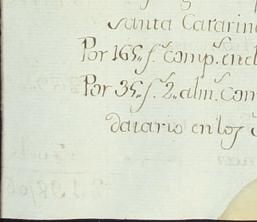 Santa Catarin
Por 165,, f.s comp. en el
Por 35,, f.s 2,, alm.s Com
datario en los